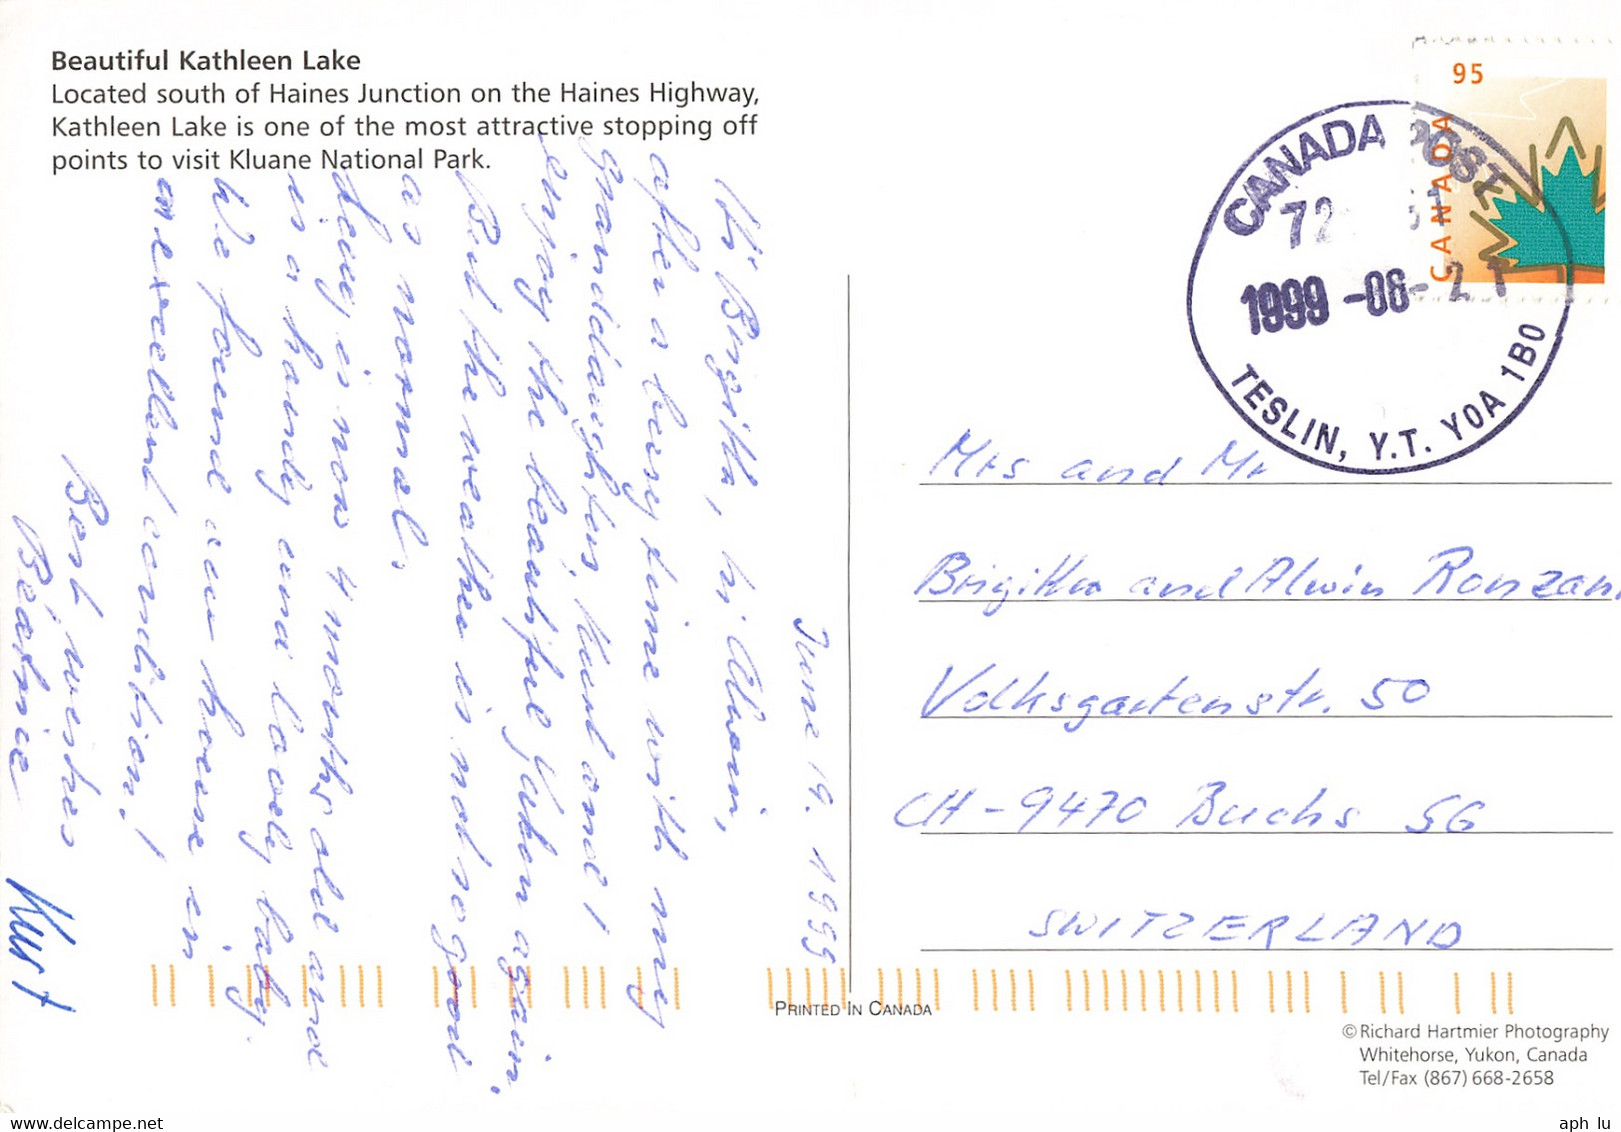 Beautiful Kathleen Lake
Located south of Haines Junction on the Haines Highway,
Kathleen Lake is one of the most attractive stopping off
points to visit Kluane National Park.
June 19. 1999
Hi Brigitta, hi Alwin,
after a long time with my
granddaughters, Kurt and I
enjoy the beautiful Yukon again.
But the weather is not so good
as normal.
is now 4 months old and
is a handy and lovely baby.
We found our house in
an excellent condition!
Best wishes
Béatrice
Kurt
95
CANADA
CANADA POST
72
1999-06-21
TESLIN, Y.T. Y0A 1B0
Mrs and Mr
Brigitta and Alwin Ronzani
Volksgartenstr. 50
CH-9470 Buchs SG
SWITZERLAND
PRINTED IN CANADA
©Richard Hartmier Photography
Whitehorse, Yukon, Canada
Tel/Fax (867) 668-2658
aph lu